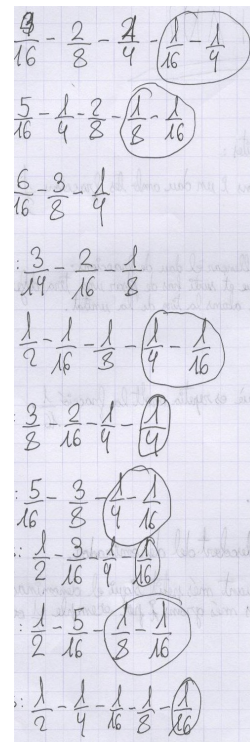 9/16 - 2/8 - 1/4 - 1/16 - 1/4
5/16 - 1/4 - 2/8 - 1/8 - 1/16
6/16 - 3/8 - 1/4
: 3/14 - 2/16 - 1/8
1/2 - 1/16 - 1/8 - 1/4 - 1/16
: 3/8 - 2/16 - 1/4 - 1/4
: 5/16 - 3/8 - 1/4 - 1/16
: 1/2 - 3/16 - 1/4 - 1/16
: 1/2 - 5/16 - 1/8 - 1/16
: 1/2 - 1/4 - 1/16 - 1/8 - 1/16